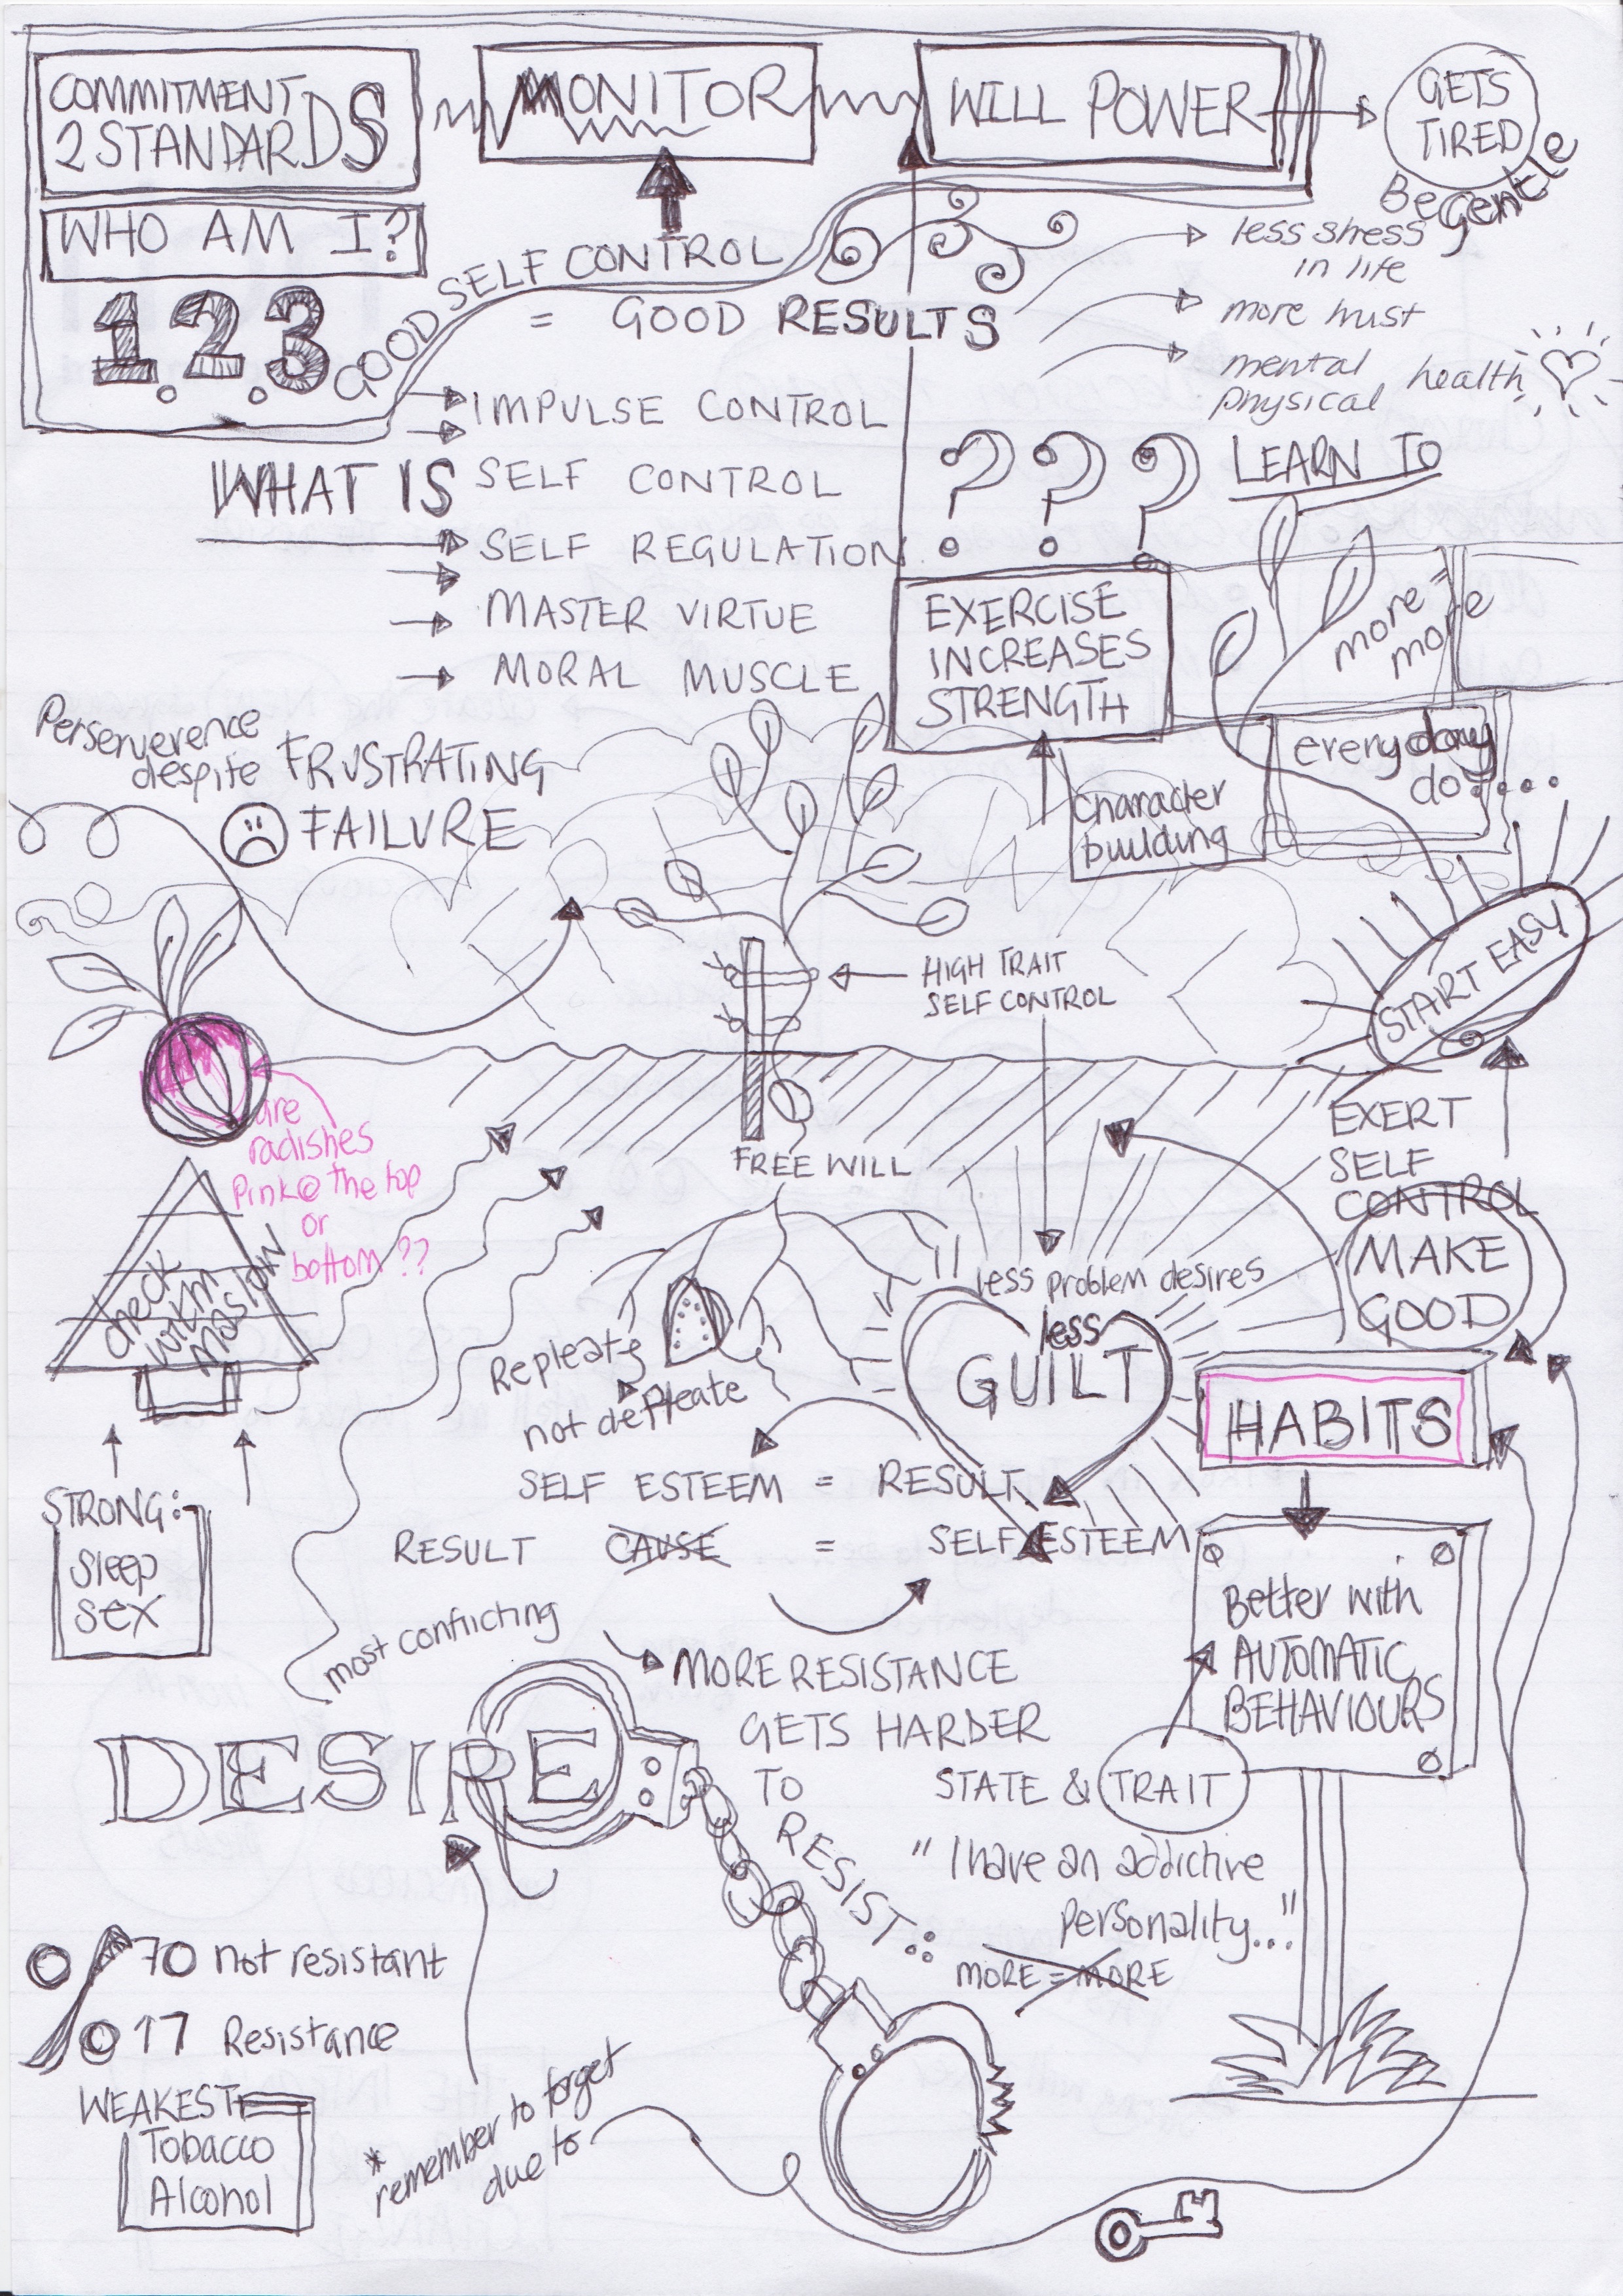 COMMITMENT
2 STANDARDS
MONITOR
WILL POWER
GETS
TIRED
Be Gentle
WHO AM I?
1.2.3
GOOD SELF CONTROL
= GOOD RESULTS
less stress
in life
more trust
mental
physical health
WHAT IS
IMPULSE CONTROL
SELF CONTROL
SELF REGULATION
MASTER VIRTUE
MORAL MUSCLE
? ? ?
LEARN TO
EXERCISE
INCREASES
STRENGTH
more
more
everyday
do....
Character
building
Perserverence
despite FRUSTRATING
FAILURE
HIGH TRAIT
SELF CONTROL
START EASY
are
radishes
Pink @ the top
or
bottom ??
FREE WILL
EXERT
SELF
CONTROL
MAKE
GOOD
check
with
maslow
less problem desires
less
GUILT
Repleate
not depleate
HABITS
SELF ESTEEM = RESULT
RESULT CAUSE = SELF ESTEEM
STRONG:
Sleep
Sex
Better with
AUTOMATIC
BEHAVIOURS
most conflicting
MORE RESISTANCE
GETS HARDER
TO
RESIST:
DESIRE
STATE & TRAIT
"I have an addictive
personality..."
MORE = MORE
70 not resistant
17 Resistance
WEAKEST
Tobacco
Alcohol
* remember to forget
due to